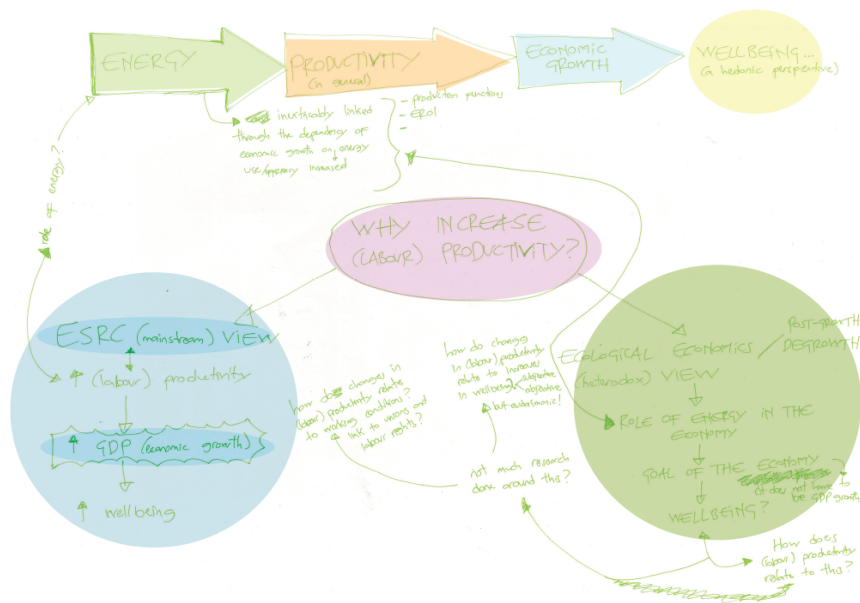 ENERGY
PRODUCTIVITY
(in general)
ECONOMIC
GROWTH
WELLBEING...
(a hedonic perspective)
inextricably linked
through the dependency of
economic growth on energy
use/ increased
- production functions
- EROI
-
role of energy?
WHY INCREASE
(LABOUR) PRODUCTIVITY?
ESRC (mainstream) VIEW
↑ (labour) productivity
↑ GDP (economic growth)
↑ wellbeing
how do changes in
(labour) productivity relate
to working conditions?
link to unions and
labour rights?
how do changes
in (labour) productivity
relate to increases
in wellbeing? subjective
objective
but eudaimonic!
not much research
done around this?
ECOLOGICAL ECONOMICS / POST-GROWTH
DEGROWTH
(heterodox) VIEW
ROLE OF ENERGY IN THE
ECONOMY
GOAL OF THE ECONOMY
it does not have to
be GDP growth
WELLBEING?
How does
(labour) productivity
relate to this?